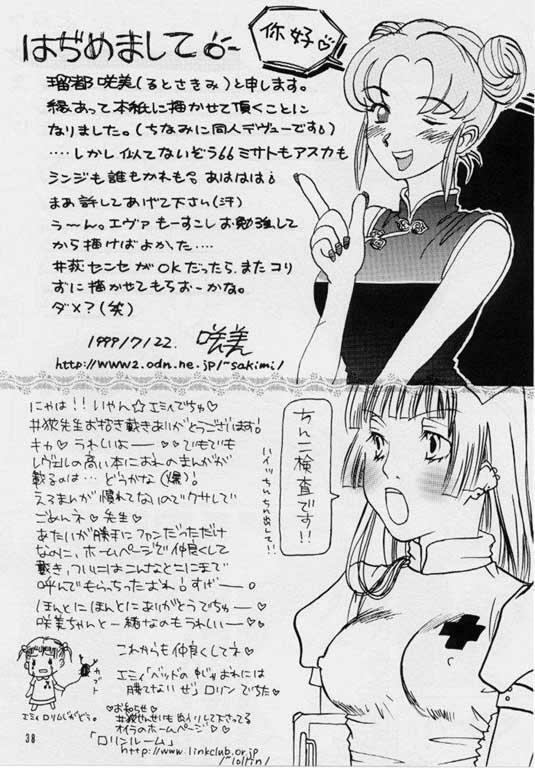 はぢめまして
你好♡
瑠都咲美(るとさきみ)と申します。
縁あって本紙に描かせて頂くことに
なりました。(ちなみに同人デヴューです)
‥‥しかし似てないぞう ミサトもアスカも
シンジも誰もかれも。あははは
まあ許してあげて下さい(汗)
う〜ん。エヴァもーすこしお勉強して
から描けばよかった‥‥
井荻センセがOKだったら、またコリ
ずに描かせてもらおーかな。
ダメ?(笑)
1999/7/22. 咲美
http://www2.odn.ne.jp/~sakimi/
にゃは!!いやん☆エミィでちゅ♡
先生お招き戴きありがとうございます!
キャ♡うれしいよー♡♡でもでも
レヴェルの高い本におれのまんがが
載るのは… どうかな(爆)!
えろまんが慣れてないのでクサしてて
ごめんネ♡先生♡
あたいが勝手にファンだっただけ
なのに、ホームページで仲良くして
戴き、ついにはこんなとこにまで
呼んでもらっちったおれ!すげー。
ほんとにほんとにありがとうでちゅー♡
咲美ちゃんと一緒なのもうれしいー♡
これからも仲良くしてネ♡
エミィ「ベッドの おれには
勝てないぜ」ロリンでちた♡
カブト
♡お知らせ♡
オイラのホームページ♡♡
「ロリンルーム」
http://www.linkclub.or.jp
/~lollin/
ちんこ検査です!!
ハイッちんちん出して!!
38